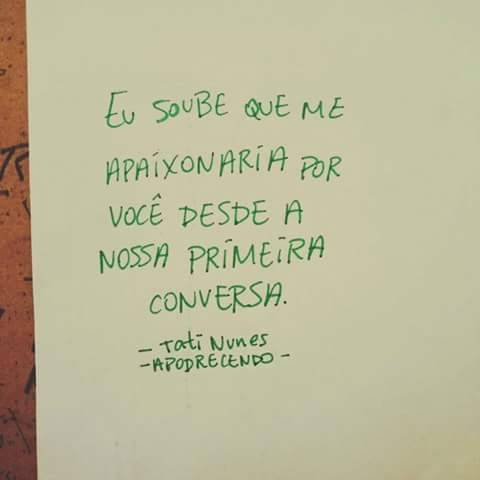 EU SOUBE QUE ME
APAIXONARIA POR
VOCÊ DESDE A
NOSSA PRIMEIRA
CONVERSA.
- Tati Nunes
-APODRECENDO-